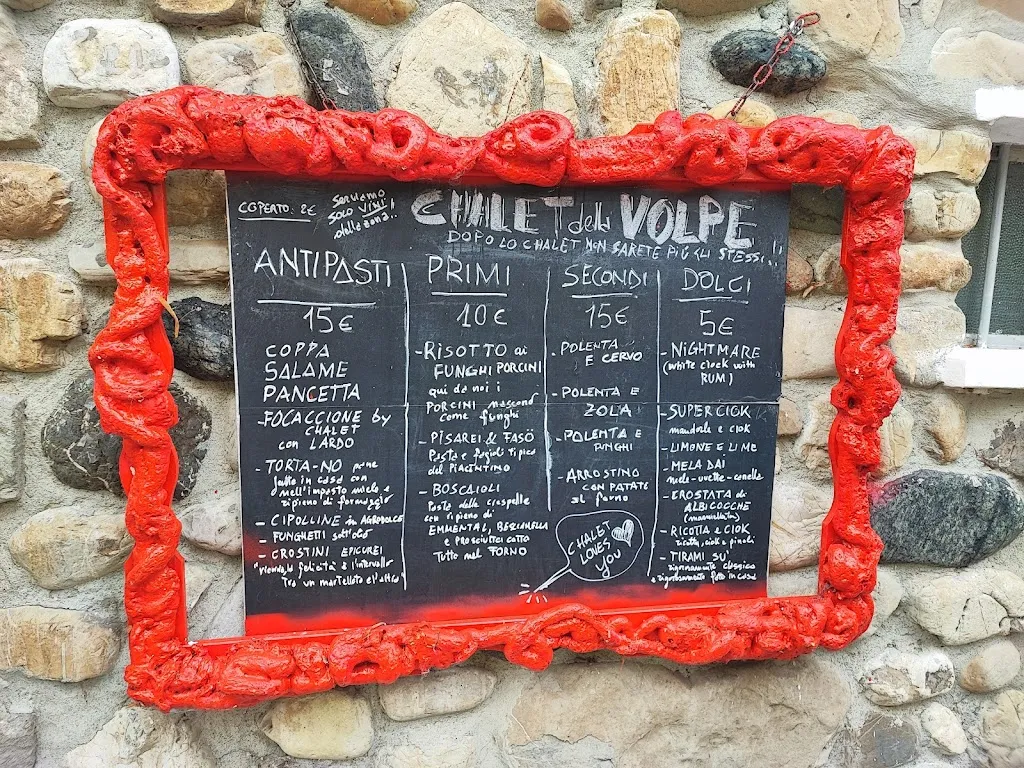 COPERTO: 2€
Serviamo
SOLO VINI
della zona..
CHALET della VOLPE
DOPO LO CHALET NON SARETE PIÙ GLI STESSI..!!
ANTIPASTI
15€
COPPA
SALAME
PANCETTA
-FOCACCIONE by
CHALET
con LARDO
- TORTA-NO pane
fatto in casa con
nell'impasto miele e
ripieno di formaggio
- CIPOLLINE in AGRODOLCE
- FUNGHETTI sott'olio
- CROSTINI EPICUREI
felicità è l'intervallo
Tra un martellata e l'altra
PRIMI
10€
-RISOTTO ai
FUNGHI PORCINI
qui da noi i
PORCINI nascono
come funghi
- PISAREI & FASÖ
Pasta e fagioli tipica
del PIACENTINO
- BOSCAIOLI
Pasta delle crespelle
con ripieno di
EMMENTAL, BESCIAMELLA
e prosciutto cotto
Tutto nel FORNO
SECONDI
15€
. POLENTA
E CERVO
. POLENTA E
ZOLA
-POLENTA E
FUNGHI
- ARROSTINO
CON PATATE
al forno
CHALET
LOVES
YOU
DOLCI
5€
- NIGHTMARE
(white ciock with
RUM)
- SUPER CIOK
mandorle e ciok
- LIMONE E LIME
- MELA DAI
mele-uvetta-canella
- CROSTATA di
ALBICOCCHE
- RICOTTA E CIOK
ricotta, ciok e pinoli
- TIRAMI SU'
rigorosamente classico
e rigorosamente fatto in casa